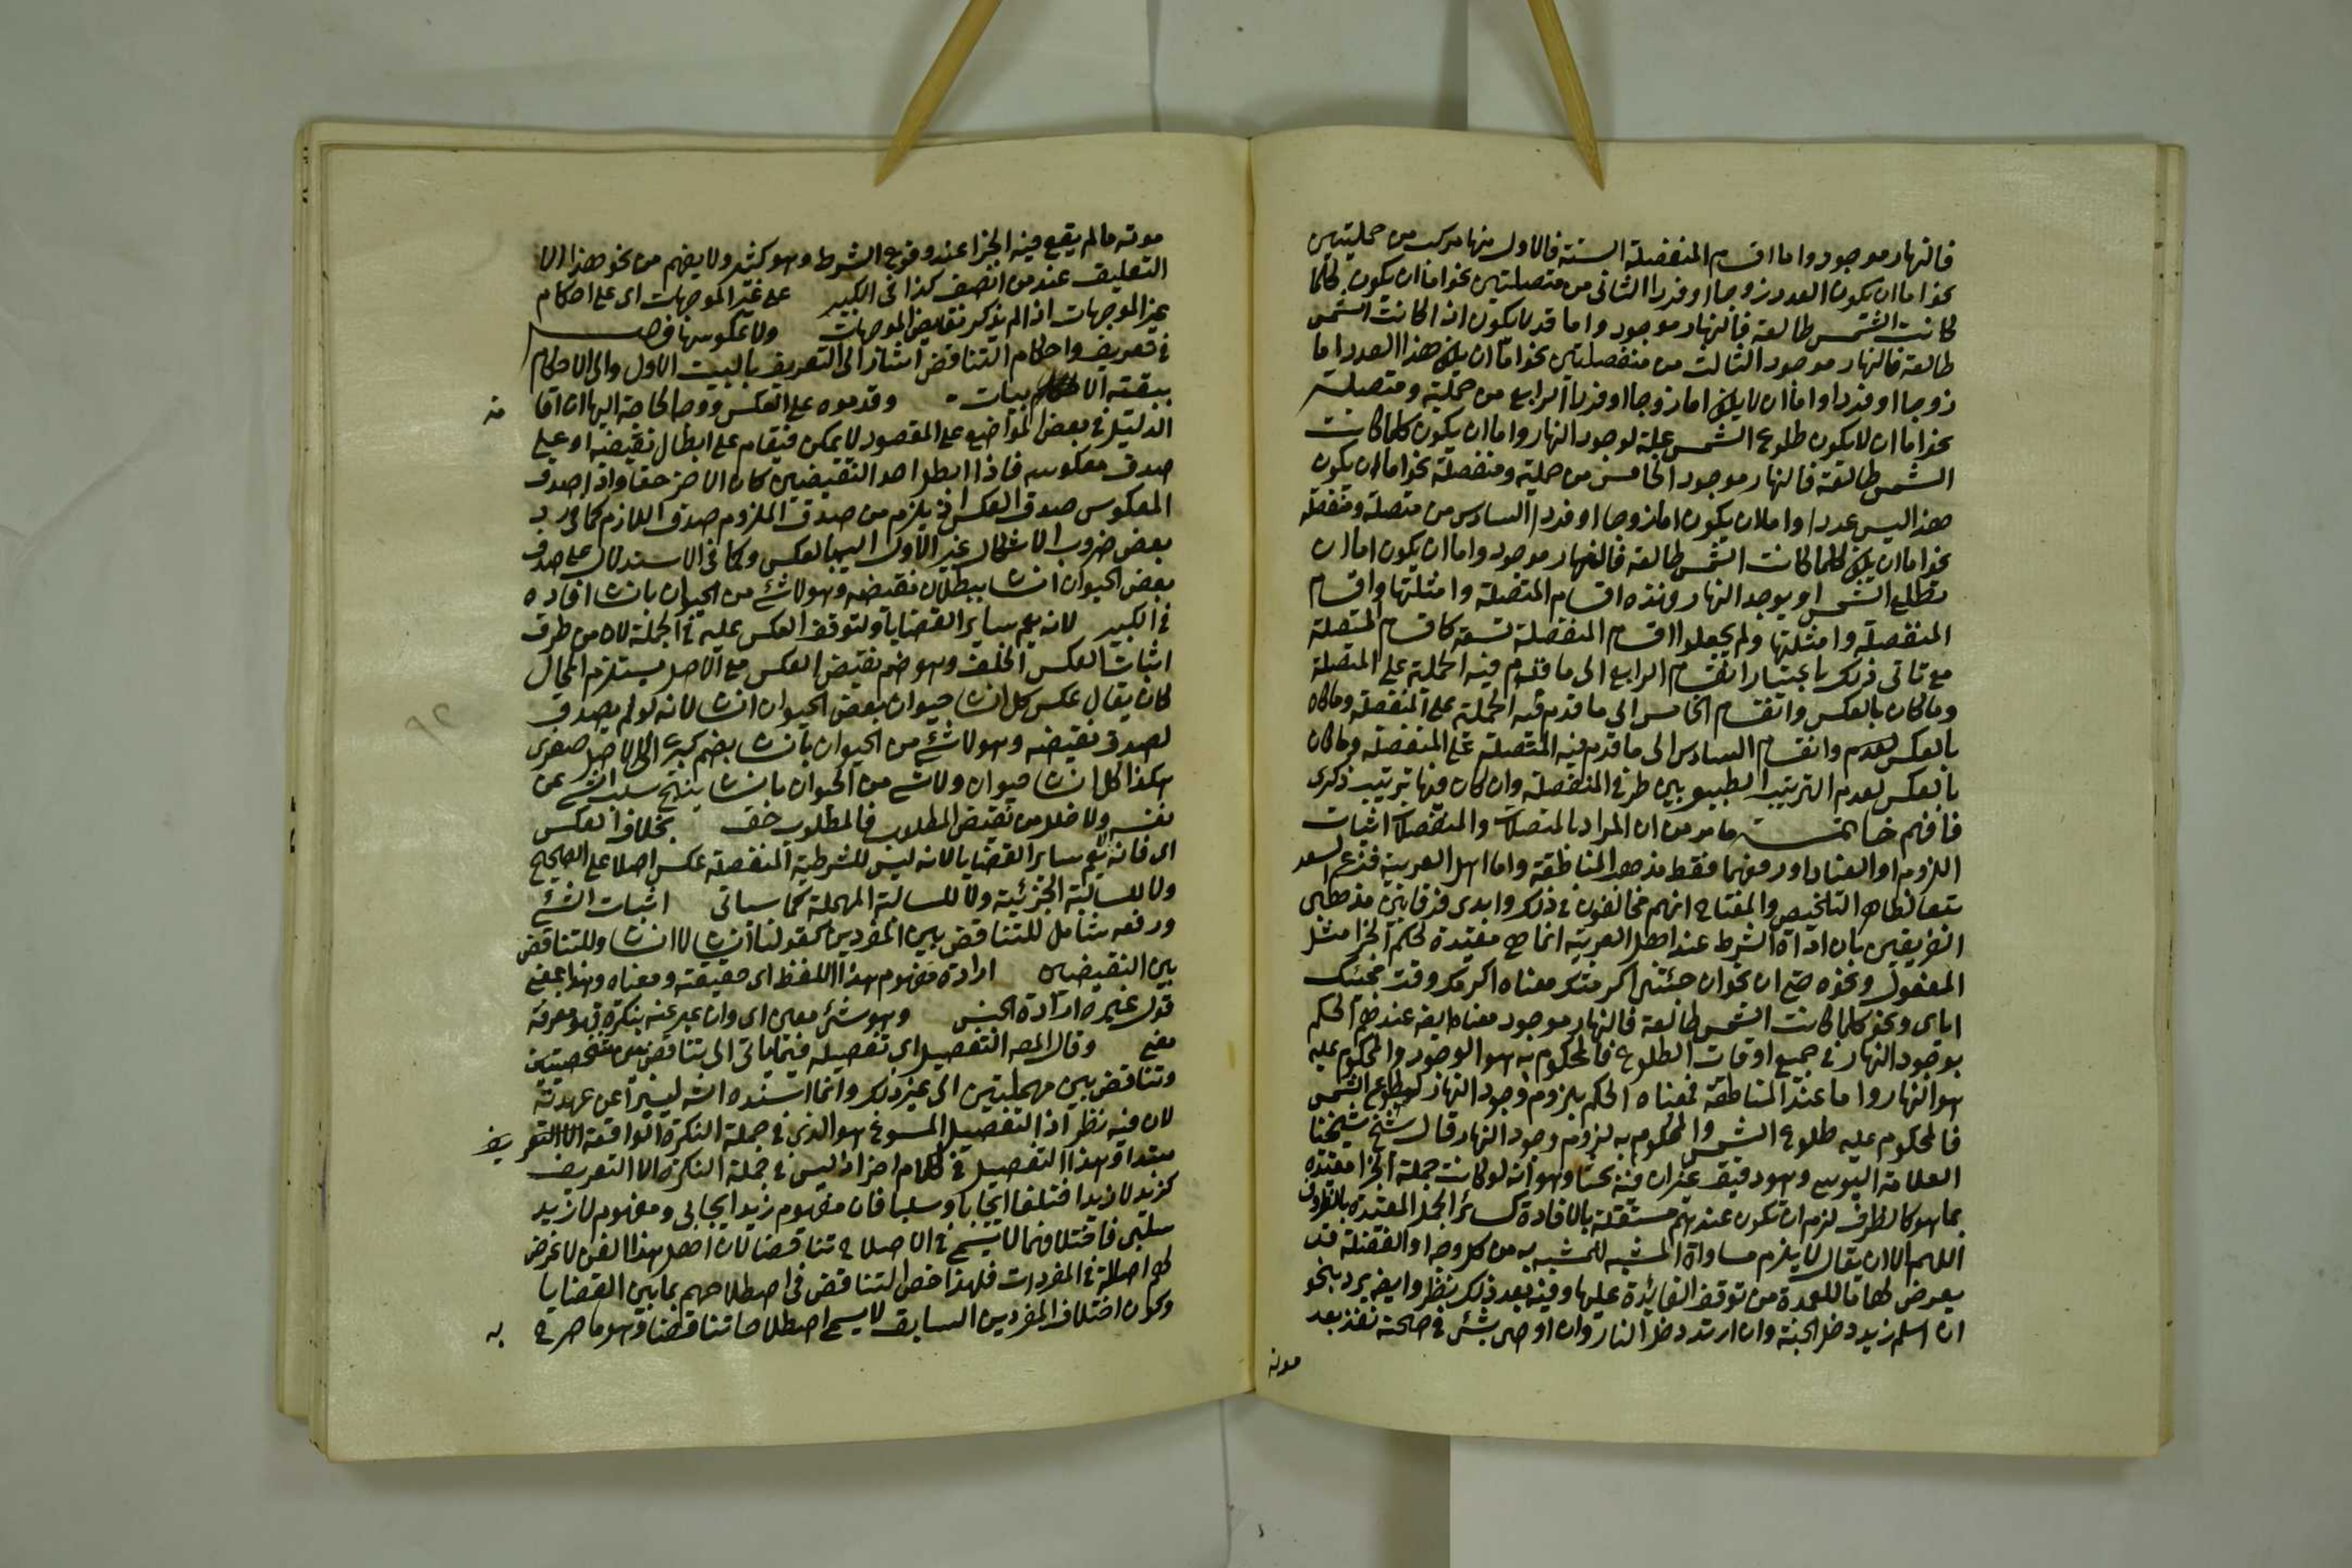 فالنهار موجود واما اقسام المنفصلة الستة فالاول منها مركب من حمليتين
نحو اما ان يكون العدد زوجا او فردا الثانى من متصلتين نحو اما ان يكون كلما
كانت الشمس طالعة فالنهار موجود واما قد لا يكون اذا كانت الشمس
طالعة فالنهار موجود الثالث من منفصلتين نحو اما ان يكون هذا العدد اما
زوجا او فردا واما ان لا يكون اما زوجا او فردا الرابع من حملية ومتصلة
نحو اما ان لا يكون طلوع الشمس علة لوجود النهار واما ان يكون كلما كانت
الشمس طالعة فالنهار موجود الخامس من حملية ومنفصلة نحو اما ان يكون
هذا ليس عددا واما ان يكون اما زوجا او فردا السادس من متصلة ومنفصلة
نحو اما ان يكون كلما كانت الشمس طالعة فالنهار موجود واما ان يكون اما ان
تطلع الشمس او يوجد النهار وهذه اقسام المتصلة وامثلتها واقسام
المنفصلة وامثلتها ولم يجعلوا اقسام المنفصلة تسعة كاقسام المتصلة
مع تاتى ذلك باعتبار انقسام الرابع الى ما قدم فيه الحملية على المتصلة
وما كان بالعكس وانقسام الخامس الى ما قدم فيه الحملية على المنفصلة وما كان
بالعكس وانقسام السادس الى ما قدم فيه المتصلة على المنفصلة وما كان
بالعكس لعدم الترتيب الطبيعى بين طرفى المنفصلة وان كان فيها ترتيب ذكرى
فافهم خاتمة ما مر من ان المراد بالمتصلات والمنفصلات اثبات
اللزوم او العناد او رفعهما فقط مذهب المناطقة واما اهل العربية فزعم السعد
تبعا لظاهر التلخيص والمفتاح انهم مخالفون فى ذلك وابدى فرقا بين مذهبى
الفريقين بان اداة الشرط عند اهل العربية انما هى مقيدة لحكم الجزا مثل
المفعول ونحوه حتى ان نحو ان جئتنى اكرمتك معناه اكرمك وقت مجيئك
اياى ونحو كلما كانت الشمس طالعة فالنهار موجود معناه ايضا عندهم الحكم
بوجود النهار فى جميع اوقات الطلوع فالمحكوم به هو الوجود والمحكوم عليه
هو النهار واما عند المناطقة فمعناه الحكم بلزوم وجود النهار لطلوع الشمس
فالمحكوم عليه طلوع الشمس والمحكوم به لزوم وجود النهار قال شيخ شيخنا
العلامة اليوسى وهو دقيق غير ان فيه بحثا وهو انه لو كانت جملة الجزا مقيدة
بما هو كالظرف لزم ان تكون عندهم مستقلة بالافادة كسائر الجمل المقيدة بالظروف
اللهم الا ان يقال لا يلزم مساواة المشبه للمشبه به من كل وجه او الفضلة قد
يعرض لها ما للعمدة من توقف الفائدة عليها وفيه بعد ذلك نظر وايضا يرد بنحو
ان اسلم زيد دخل الجنة وان ارتد دخل النار وان اوصى بشئ فى صحته نفذ بعد
موته
موته مالم يقع فيه الجزا عند وقوع الشرط وهو كثير ولا يفهم من نحو هذا الا
التعليق عند من انصف كذا فى الكبير على غير الموجهات اى على احكام
غير الموجهات اذ لم يذكر نقايض الموجهات ولا عكوسها فصل
فى تعريف واحكام التناقض اشار الى التعريف بالبيت الاول والى الاحكام
ببقية الابيات وقدموه على العكس ووجه الحاجة اليها ان اقامة
الدليل فى بعض المواضيع على المقصود لا يمكن فيقام على ابطال نقيضه او على
صدق معكوسه فاذا ابطل احد النقيضين كان الاخر حقا واذا صدق
المعكوس صدق العكس اذ يلزم من صدق الملزوم صدق اللازم كما فى رد
بعض ضروب الاشكال غير الاول اليه بالعكس وكما فى الاستدلال على صدق
بعض الحيوان انسان ببطلان نقيضه وهو لا شئ من الحيوان بانسان افاده
فى الكبير لانه يعم ساير القضايا ولتوقف العكس عليه فى الجملة لان من طرق
اثبات العكس الخلف وهو ضم نقيض العكس مع الاصل يستلزم المحال
كان يقال عكس كل انسان حيوان بعض الحيوان انسان لانه لو لم يصدق
لصدق نقيضه وهو لا شئ من الحيوان بانسان يضم كبرى الى الاصل صغرى
هكذا كل انسان حيوان ولا شئ من الحيوان بانسان ينتج سلب الشئ عن
نفسه ولا خلل من نقيض المطلوب فالمطلوب حق بخلاف العكس
اى فانه لا يعم ساير القضايا لانه ليس للشرطية المنفصلة عكس اصلا على الصحيح
ولا للسالبة الجزئية ولا للسالبة المهملة كما سياتى اثبات الشئ
ورفعه شامل للتناقض بين المفردين كقولنا انسان لا انسان وللتناقض
بين النقيضين ارادة مفهوم هذا اللفظ اى حقيقته ومعناه وهذا بمعنى
قول غيره ارادة الجنس وهو شئ معين اى وان عبر عنه بنكرة فهو معرفة
معنى وقال المصـ التفصيل اى تفصيله فيما ياتى الى تناقض بين شخصيتين
وتناقض بين مهملتين الى غير ذلك وانما اسنده اليه ليتبرا عن عهدته
لان فيه نظر اذ التفصيل المسوغ هو الذى فى جملة النكرة الواقعة
مبتدا وهذا التفصيل فى كلام اخر اذ ليس فى جملة النكرة الا التعريف
كزيد لا زيد اختلفا ايجابا وسلبا فان مفهوم زيد ايجابى ومفهوم لا زيد
سلبى فاختلافهما لا يسمى فى الاصلاح تناقضا لان اهل هذا الفن لا غرض
لهم اصالة فى المفردات فلهذا خص التناقض فى اصطلاحهم بما بين القضايا
وكون اختلاف المفردين السابق لا يسمى اصطلاحا تناقضا وهو ما صرح به